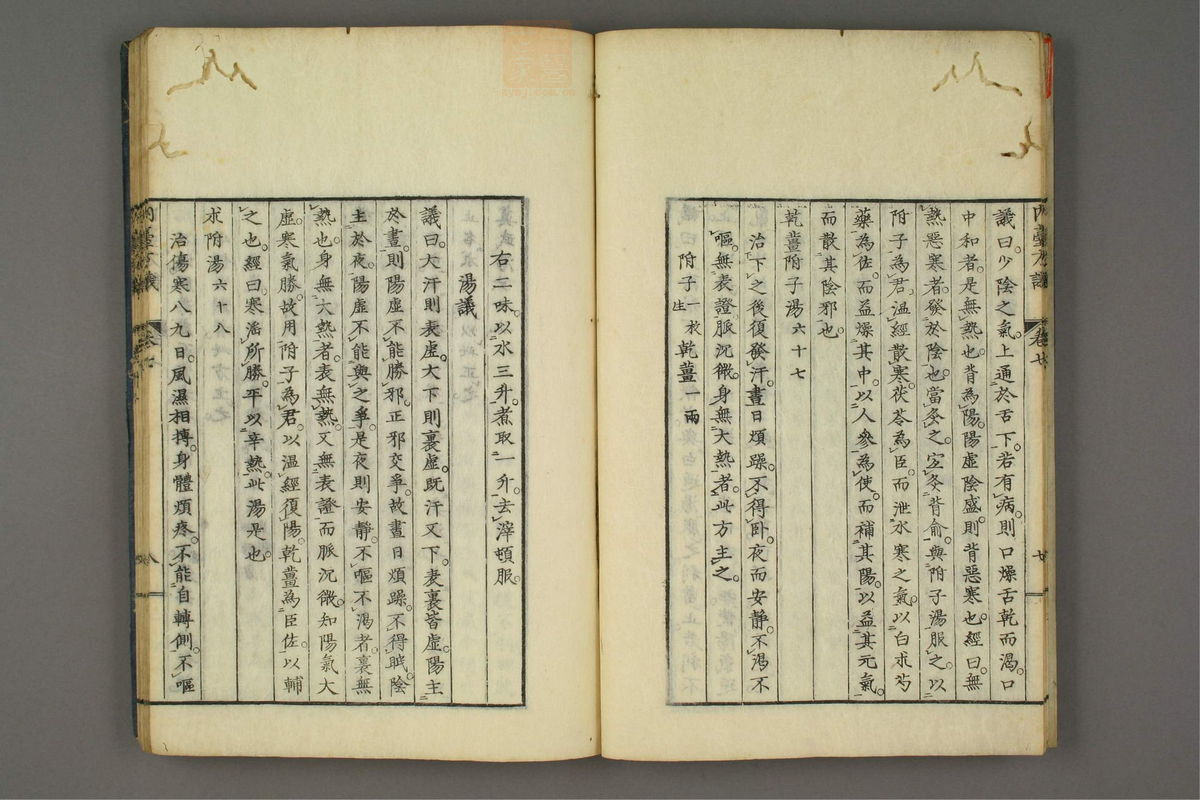 議曰少陰之氣上通於舌下若有病則口燥舌乾而渴口
中和者是無熱也背為陽陽虛陰盛則背惡寒也經曰無
熱惡寒者發於陰也當灸之宜灸背俞與附子湯服之以
附子為君温經散寒茯苓為臣而泄水寒之氣以白朮芍
藥為佐而益燥其中以人參為使而補其陽以益其元氣
而散其陰邪也
乾薑附子湯六十七
治下之後復發汗晝日煩躁不得卧夜而安靜不渴不
嘔無表證脈沉微身無大熱者此方主之
附子一枚生 乾薑一兩
右二味以水三升煮取一升去滓頓服
湯議
議曰大汗則表虛大下則裏虛既汗又下表裏皆虛陽主
於晝則陽虛不能勝邪正邪交爭故晝日煩躁不得眠陰
主於夜陽虛不能與之爭是夜則安靜不嘔不渴者裏無
熱也身無大熱者表無熱又無表證而脈沉微知陽氣大
虛寒氣勝故用附子為君以温經復陽乾薑為臣佐以輔
之也經曰寒淫所勝平以辛熱此湯是也
朮附湯六十八
治傷寒八九日風濕相摶身體煩疼不能自轉側不嘔